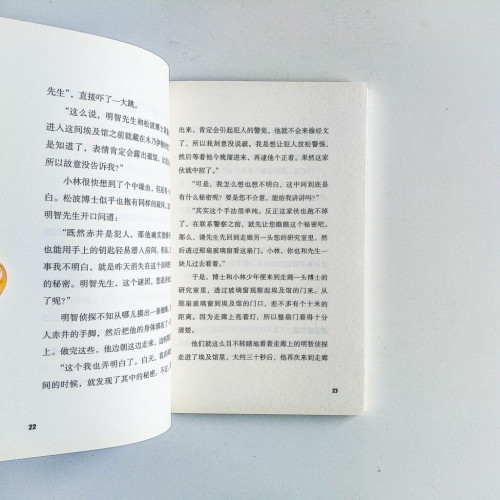 先生”，直接吓了一大跳。
“这么说，明智先生和松波博士
进入这间埃及馆之前就藏在木乃伊
是知道了，表情肯定会露出破绽，
所以故意没告诉我？”
小林很快想到了个中缘由，但还
白。松波博士似乎也抱有同样的疑问，
明智先生开口问道：
“既然赤井是犯人，那他确实能
也能用手上的钥匙轻易潜入房间。有
事我不明白，就是昨天消失在这个
的秘密。明智先生，这个谜团，您
了呢？”
明智侦探不知从哪儿摸出一条
人赤井的手脚，然后把他的身体绑在了
上。做完这些，他边朝这边走来，边
“这个我也弄明白了。白天，我
间的时候，就发现了其中的秘密。不过，
22
出来，肯定会引起犯人的警觉，他就不会来偷经文
了，所以我刻意没说破。我是想让犯人放松警惕，
然后等着他今晚溜进来，再逮他个正着。果然这家
伙就中招了。”
“可是，我怎么想也想不明白，这中间到底是
有什么秘密呢？要是您不介意，能给我讲讲吗？”
“其实这个手法很单纯。反正这家伙也跑不掉
了，在联系警察之前，就先让您瞧瞧这个秘密吧。
那么，请先生先回到走廊另一头您的研究室里，然
后透过那扇玻璃窗看这扇门。小林，你也和先生一
块儿过去看着。”
于是，博士和小林少年便来到走廊一头博士的
研究室里，透过玻璃窗观察起埃及馆的门口。从
那扇玻璃窗到埃及馆的门口，差不多有个十米的
距离。因为走廊上亮着灯，所以整扇门看得十分
清楚。
他们就这么目不转睛地看着走廊上的明智侦探
走进了埃及馆里，大约三十秒后，他再次来到走廊
23